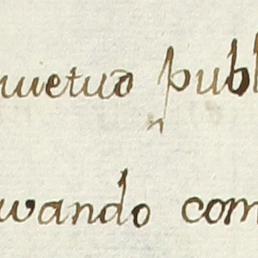 uietud publ
uando com